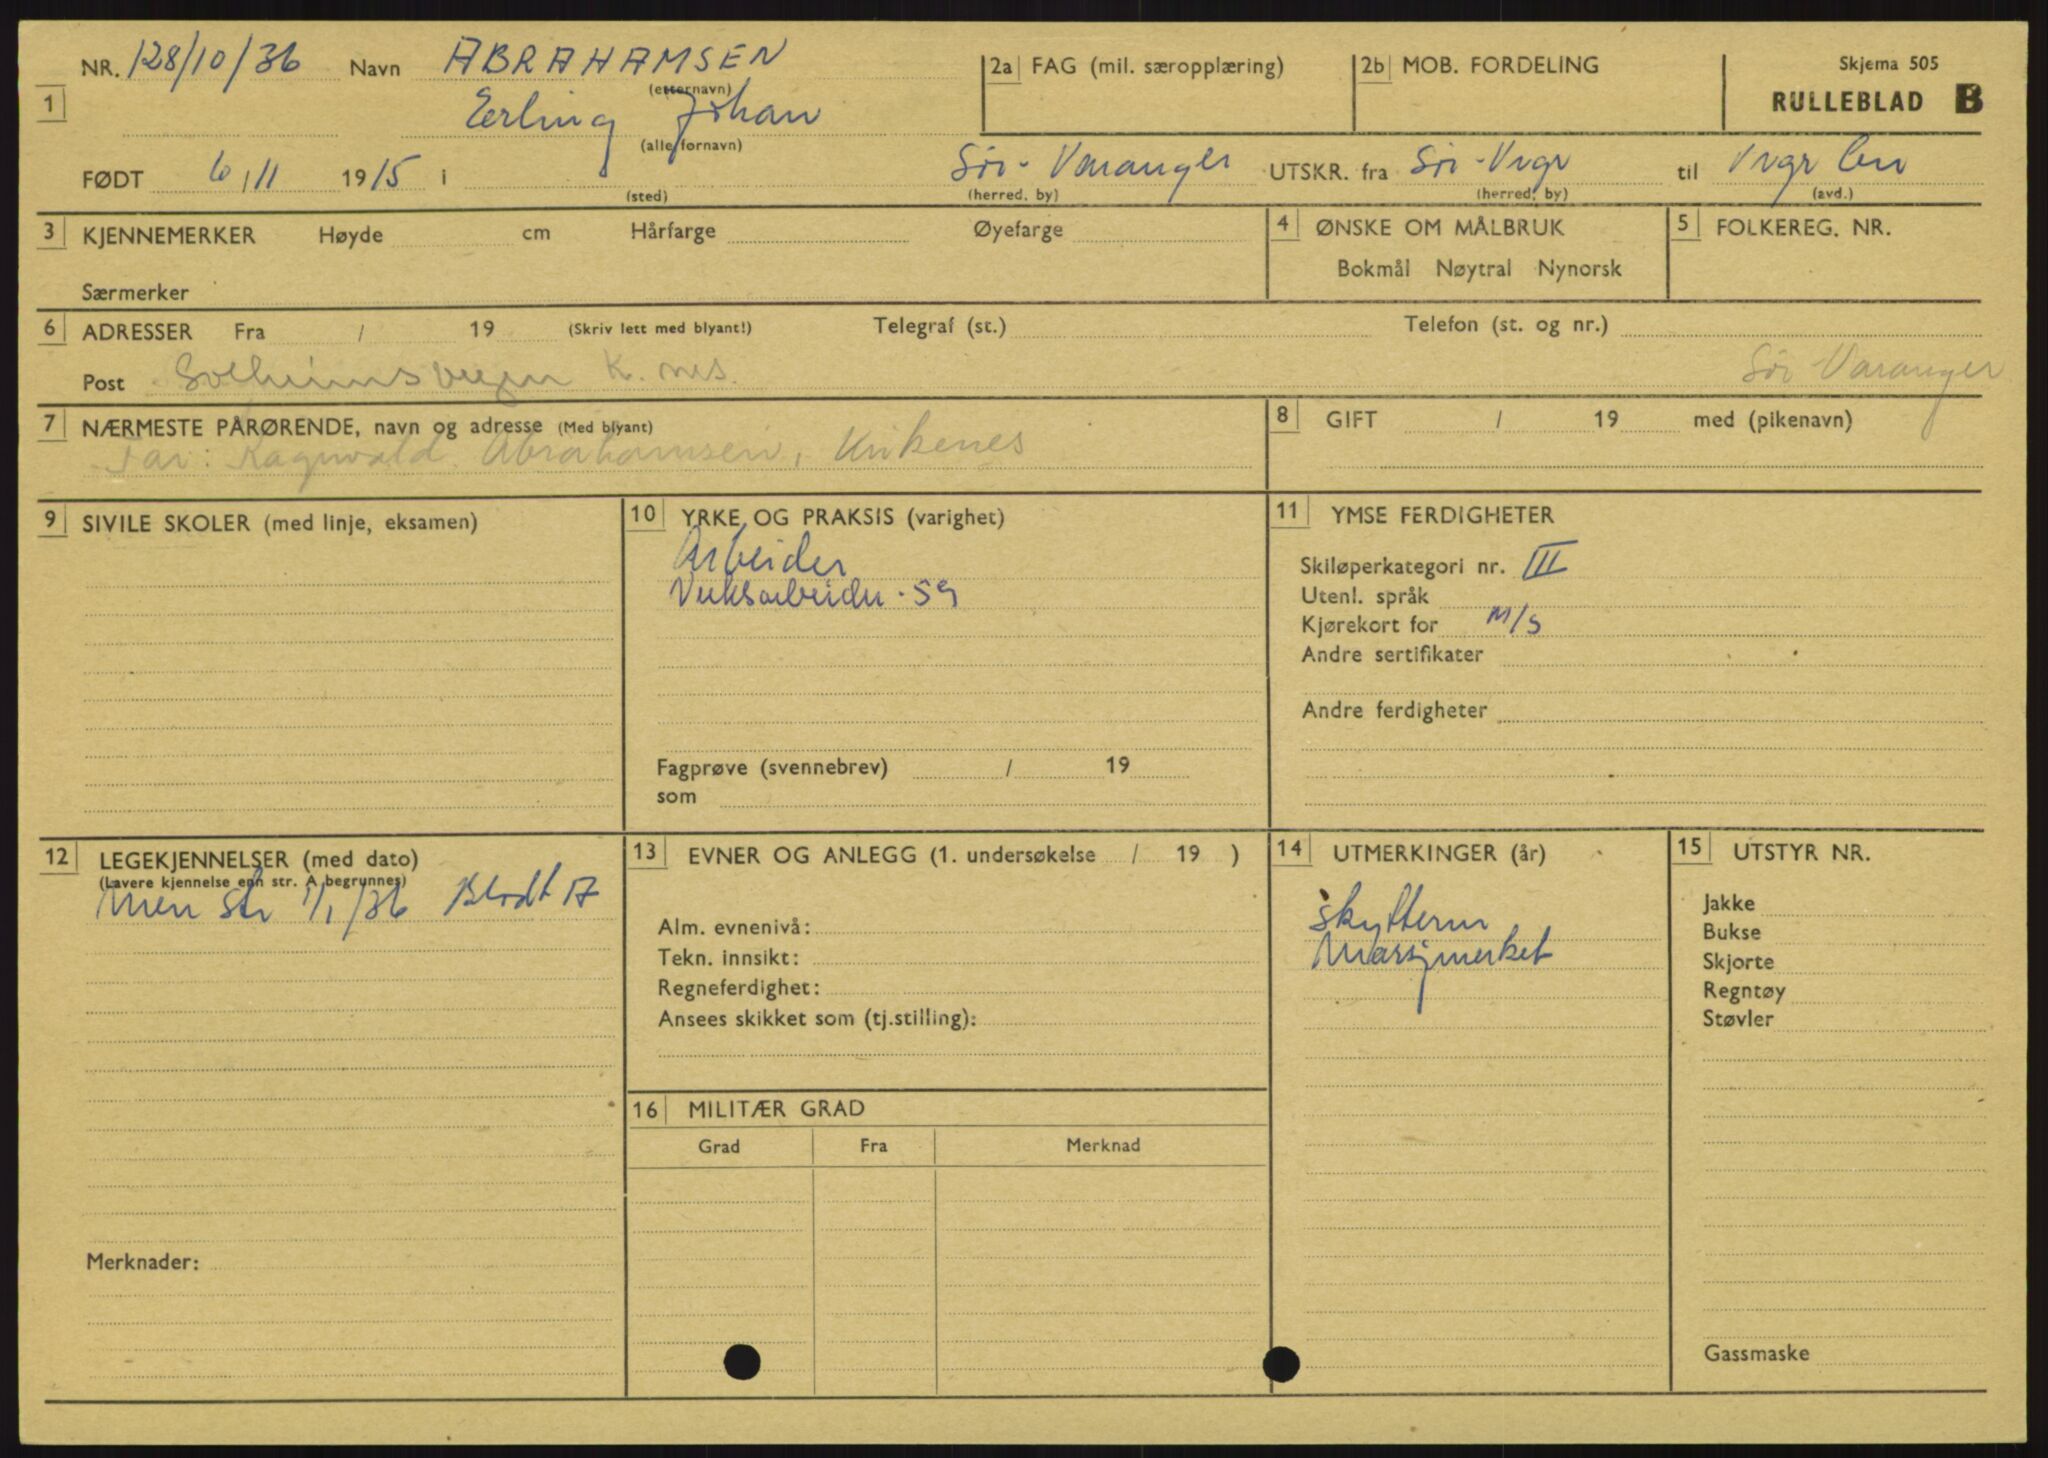 NR. 128/10/36 Navn ABRAHAMSEN 2a FAG (mil. særopplæring) 2b MOB. FORDELING Skjema 505
(etternavn) RULLEBLAD B
1 Erling Johan
(alle fornavn)
FØDT 6/11 1915 i Sør-Varanger UTSKR. fra Sør-Vrgr til Vrgr bn
(sted) (herred, by) (herred, by) (avd.)
3 KJENNEMERKER Høyde cm Hårfarge Øyefarge 4 ØNSKE OM MÅLBRUK 5 FOLKEREG. NR.
Bokmål Nøytral Nynorsk
Særmerker
6 ADRESSER Fra / 19 (Skriv lett med blyant!) Telegraf (st.) Telefon (st. og nr.)
Post Solheimsveien K.nes. Sør Varanger
7 NÆRMESTE PÅRØRENDE, navn og adresse (Med blyant) 8 GIFT / 19 med (pikenavn)
Far: Ragnvald Abrahamsen, Kirkenes
9 SIVILE SKOLER (med linje, eksamen) 10 YRKE OG PRAKSIS (varighet) 11 YMSE FERDIGHETER
Arbeider
Verksarbeider - 59
Skiløperkategori nr. III
Utenl. språk
Kjørekort for M/S
Andre sertifikater
Andre ferdigheter
Fagprøve (svennebrev) / 19
som
12 LEGEKJENNELSER (med dato) 13 EVNER OG ANLEGG (1. undersøkelse / 19 ) 14 UTMERKINGER (år) 15 UTSTYR NR.
(Lavere kjennelse enn str. A begrunnes)
Uten str 1/1/36 Blodt A
Alm. evnenivå:
Tekn. innsikt:
Regneferdighet:
Ansees skikket som (tj.stilling):
Skyttern
Marsjmerket
Jakke
Bukse
Skjorte
Regntøy
Støvler
16 MILITÆR GRAD
Grad Fra Merknad
Merknader:
Gassmaske